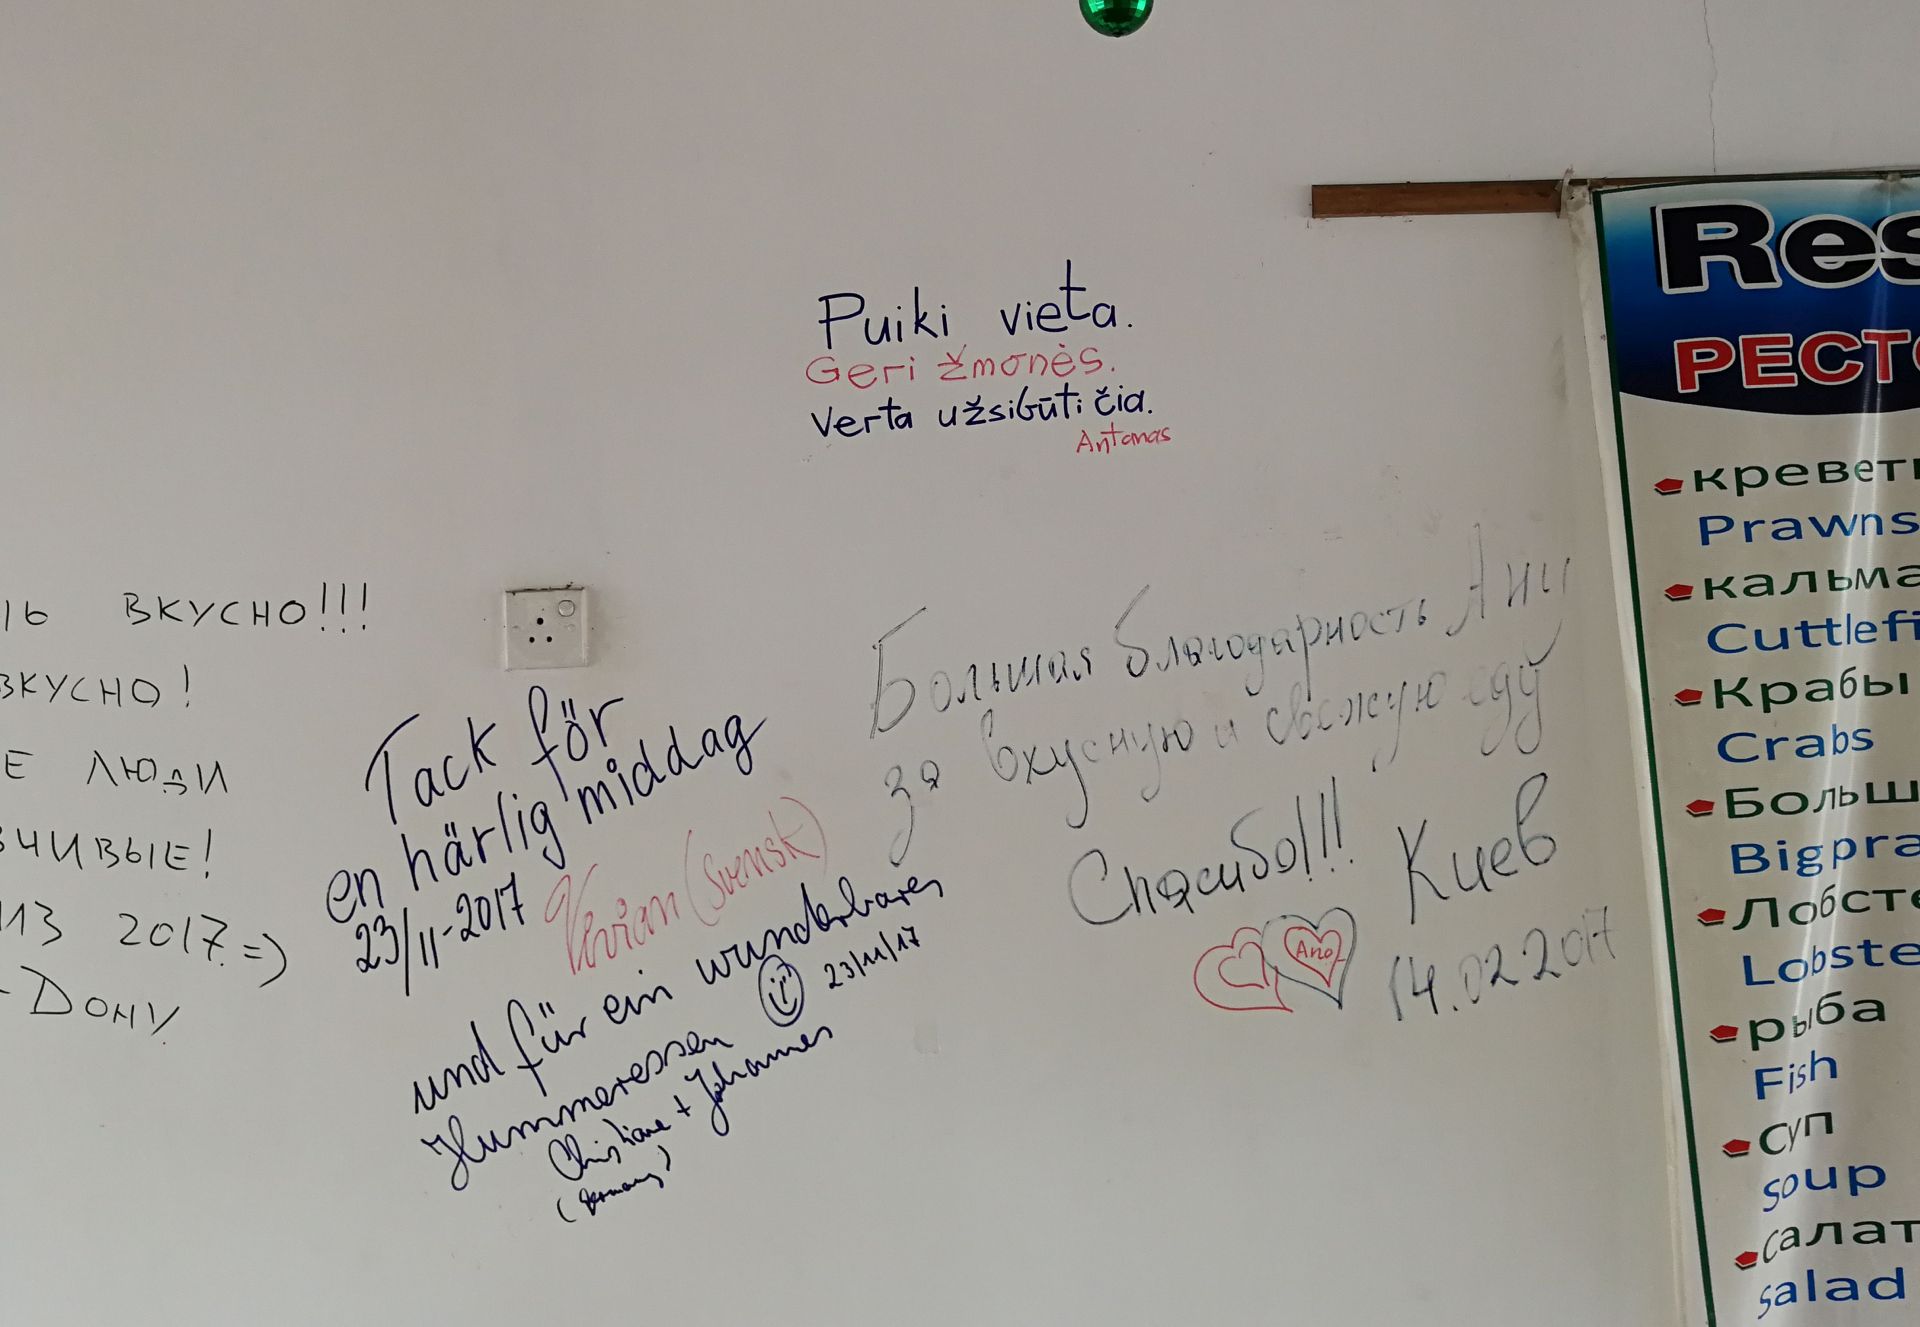 Puiki vieta.
Geri žmonės.
Verta užsibūti čia.
Antanas
ВКУСНО!!!
ВКУСНО!
Е ЛЮДИ
ЧИВЫЕ!
ИЗ 2017 =)
- Дону
Tack för
en härlig middag
23/11-2017
Vivian (Svensk)
und für ein wunderbares
Hummeressen
23/11/17
Christiane + Johannes
(Germany)
Большая благодарность Ани
за вкусную и свежую еду
Спасибо!!! Киев
Ano
14.02.2017
Res
РЕСТО
креветк
Prawns
кальма
Cuttlefi
Крабы
Crabs
Больш
Bigpra
Лобсте
Lobste
рыба
Fish
суп
soup
салат
salad